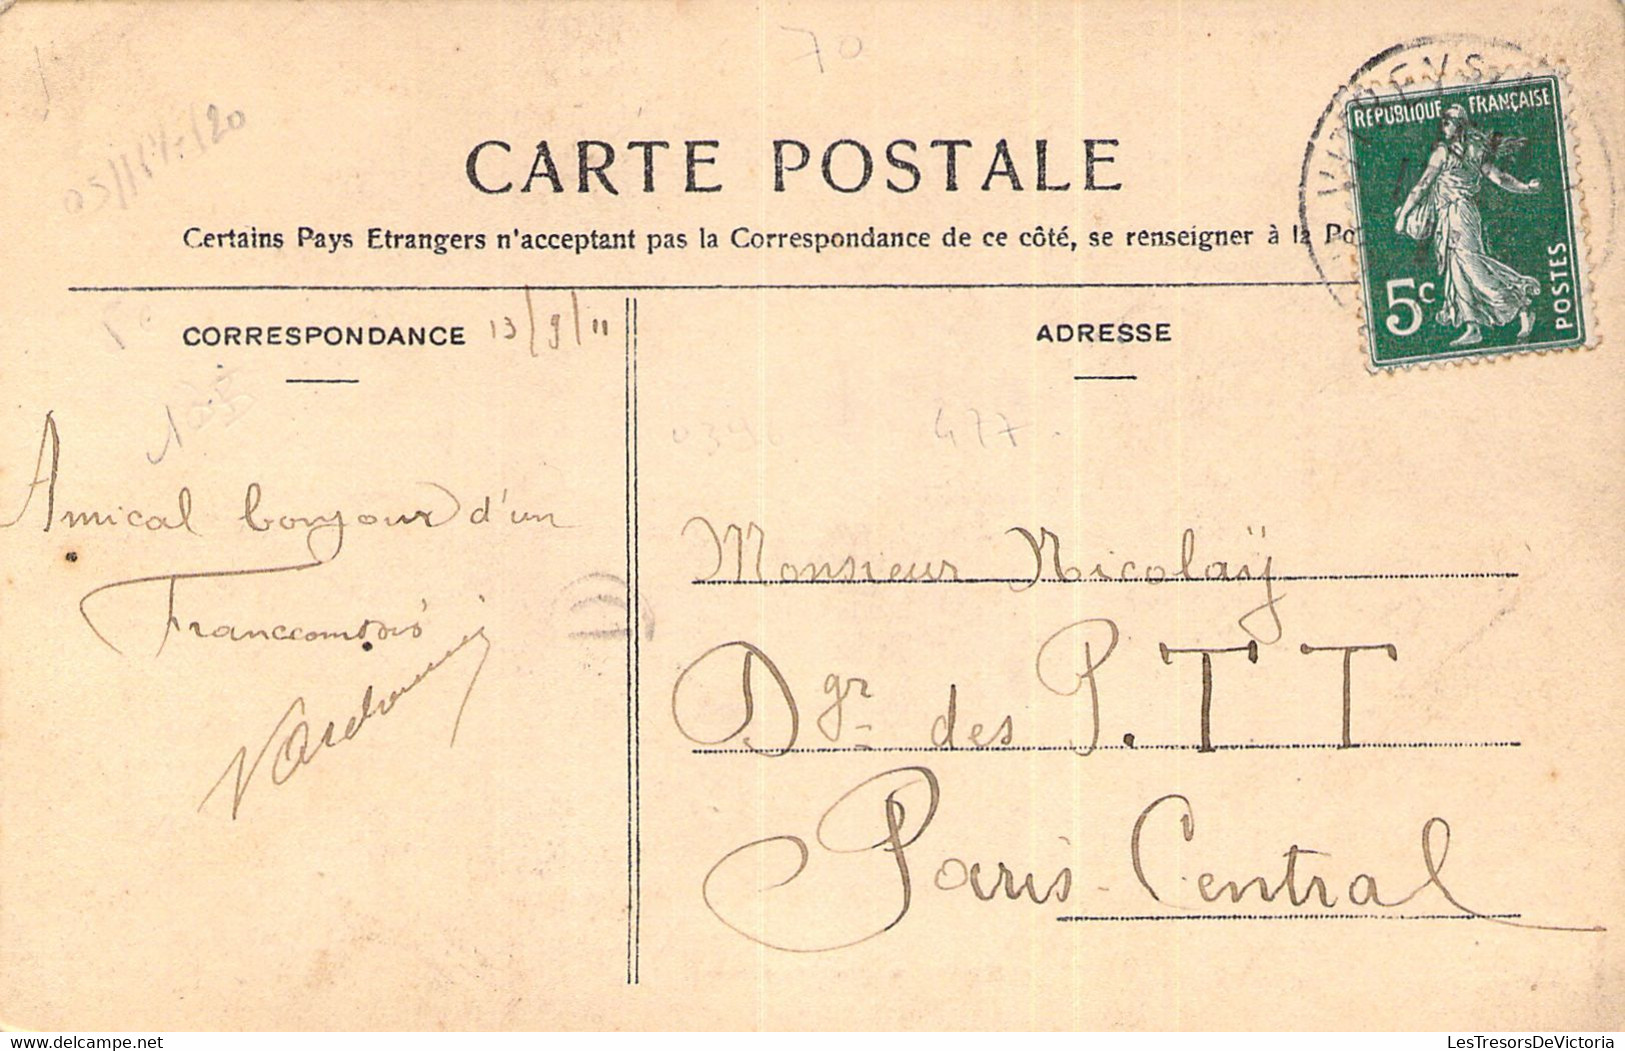 70
CARTE POSTALE
Certains Pays Etrangers n'acceptant pas la Correspondance de ce côté, se renseigner à la Po
RÉPUBLIQUE FRANÇAISE
5c
POSTES
CORRESPONDANCE 13/9/11
ADRESSE
477.
Amical bonjour d'un
Franccomtois
Monsieur Nicolaÿ
Dgr des P.TT
Paris-Central
www.LesTresorsDeVictoria.com
LesTresorsDeVictoria